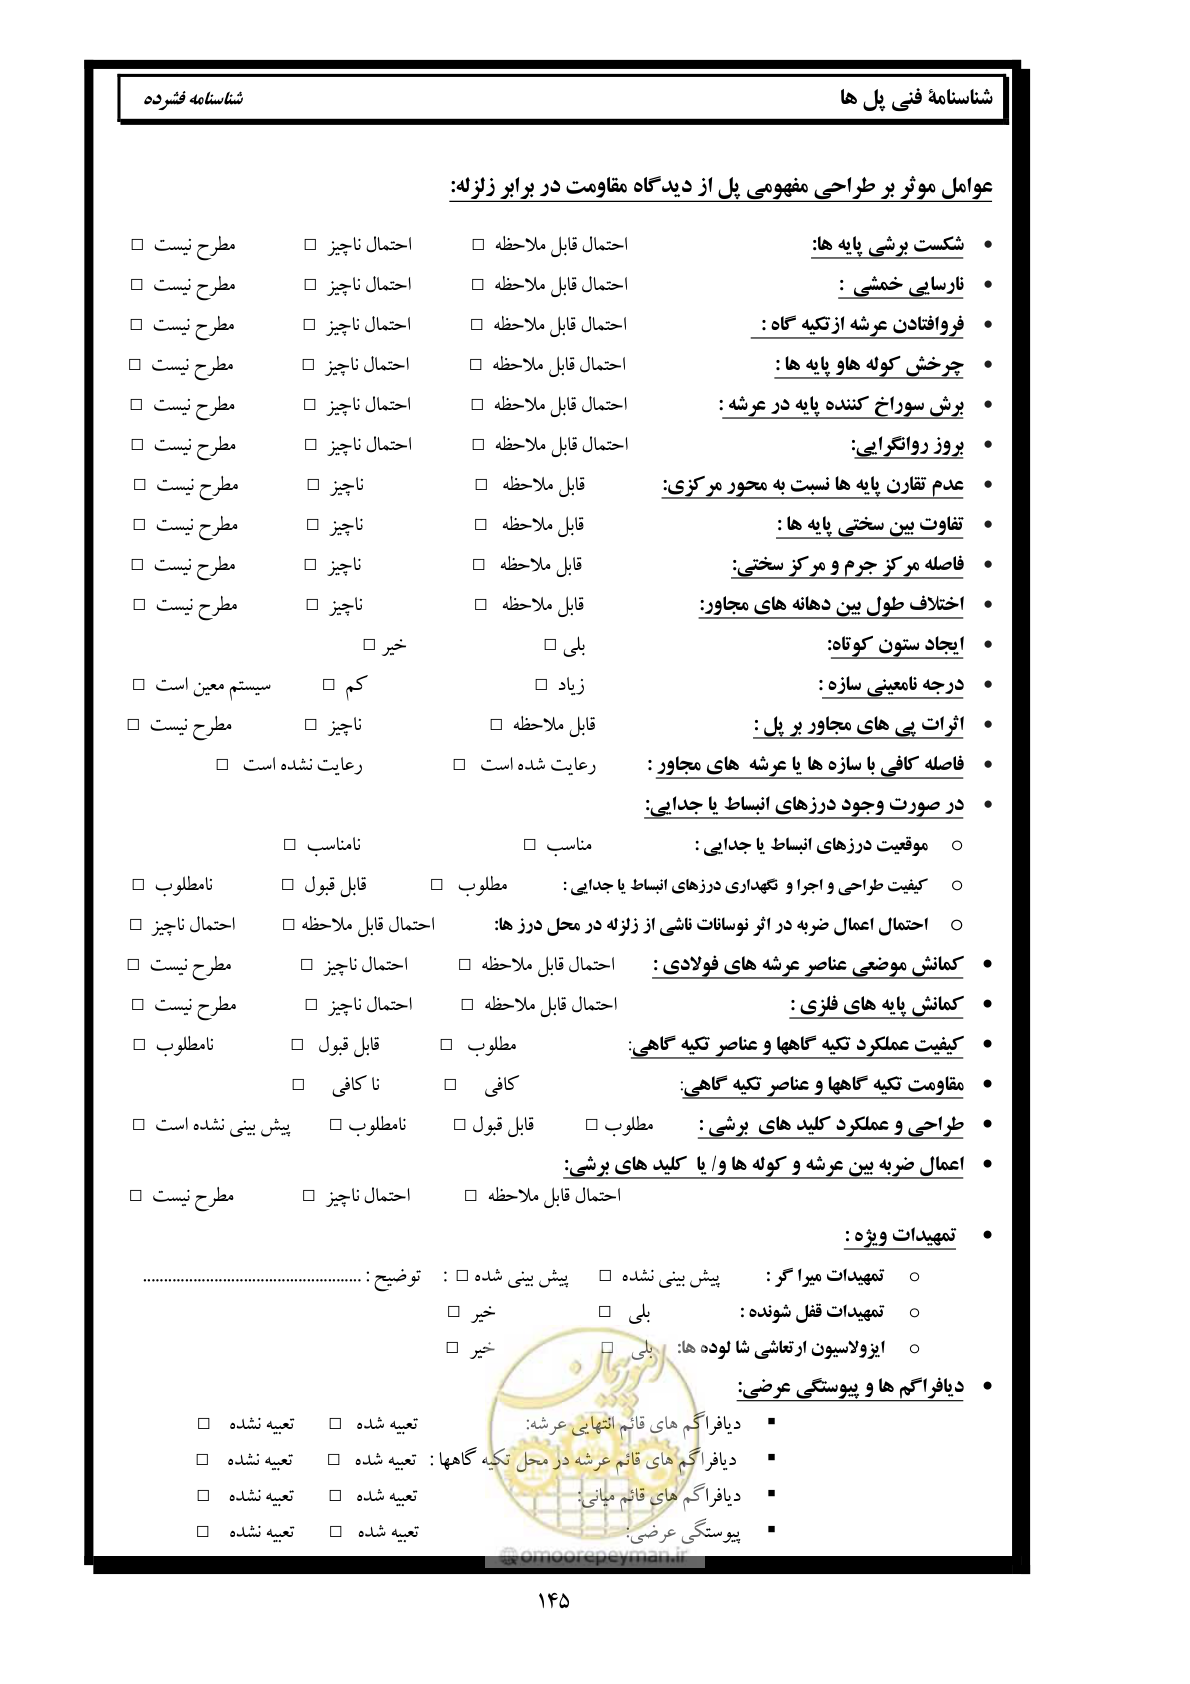 شناسنامهٔ فنی پل ها شناسنامه فشرده
عوامل موثر بر طراحی مفهومی پل از دیدگاه مقاومت در برابر زلزله:
• شکست برشی پایه ها: احتمال قابل ملاحظه □ احتمال ناچیز □ مطرح نیست □
• نارسایی خمشی : احتمال قابل ملاحظه □ احتمال ناچیز □ مطرح نیست □
• فروافتادن عرشه ازتکیه گاه : احتمال قابل ملاحظه □ احتمال ناچیز □ مطرح نیست □
• چرخش کوله هاو پایه ها : احتمال قابل ملاحظه □ احتمال ناچیز □ مطرح نیست □
• برش سوراخ کننده پایه در عرشه : احتمال قابل ملاحظه □ احتمال ناچیز □ مطرح نیست □
• بروز روانگرایی: احتمال قابل ملاحظه □ احتمال ناچیز □ مطرح نیست □
• عدم تقارن پایه ها نسبت به محور مرکزی: قابل ملاحظه □ ناچیز □ مطرح نیست □
• تفاوت بین سختی پایه ها : قابل ملاحظه □ ناچیز □ مطرح نیست □
• فاصله مرکز جرم و مرکز سختی: قابل ملاحظه □ ناچیز □ مطرح نیست □
• اختلاف طول بین دهانه های مجاور: قابل ملاحظه □ ناچیز □ مطرح نیست □
• ایجاد ستون کوتاه: بلی □ خیر □
• درجه نامعینی سازه : زیاد □ کم □ سیستم معین است □
• اثرات پی های مجاور بر پل : قابل ملاحظه □ ناچیز □ مطرح نیست □
• فاصله کافی با سازه ها یا عرشه های مجاور : رعایت شده است □ رعایت نشده است □
• در صورت وجود درزهای انبساط یا جدایی:
o موقعیت درزهای انبساط یا جدایی : مناسب □ نامناسب □
o کیفیت طراحی و اجرا و نگهداری درزهای انبساط یا جدایی : مطلوب □ قابل قبول □ نامطلوب □
o احتمال اعمال ضربه در اثر نوسانات ناشی از زلزله در محل درز ها: احتمال قابل ملاحظه □ احتمال ناچیز □
• کمانش موضعی عناصر عرشه های فولادی : احتمال قابل ملاحظه □ احتمال ناچیز □ مطرح نیست □
• کمانش پایه های فلزی : احتمال قابل ملاحظه □ احتمال ناچیز □ مطرح نیست □
• کیفیت عملکرد تکیه گاهها و عناصر تکیه گاهی: مطلوب □ قابل قبول □ نامطلوب □
• مقاومت تکیه گاهها و عناصر تکیه گاهی: کافی □ نا کافی □
• طراحی و عملکرد کلید های برشی : مطلوب □ قابل قبول □ نامطلوب □ پیش بینی نشده است □
• اعمال ضربه بین عرشه و کوله ها و/ یا کلید های برشی:
احتمال قابل ملاحظه □ احتمال ناچیز □ مطرح نیست □
• تمهیدات ویژه :
o تمهیدات میرا گر : پیش بینی نشده □ پیش بینی شده □ : توضیح : ....................................................
o تمهیدات قفل شونده : بلی □ خیر □
o ایزولاسیون ارتعاشی شا لوده ها: بلی □ خیر □
• دیافراگم ها و پیوستگی عرضی:
▪ دیافراگم های قائم انتهایی عرشه: تعبیه شده □ تعبیه نشده □
▪ دیافراگم های قائم عرشه در محل تکیه گاهها : تعبیه شده □ تعبیه نشده □
▪ دیافراگم های قائم میانی: تعبیه شده □ تعبیه نشده □
▪ پیوستگی عرضی: تعبیه شده □ تعبیه نشده □
امور پیمان
@omoorepeyman.ir
۱۴۵